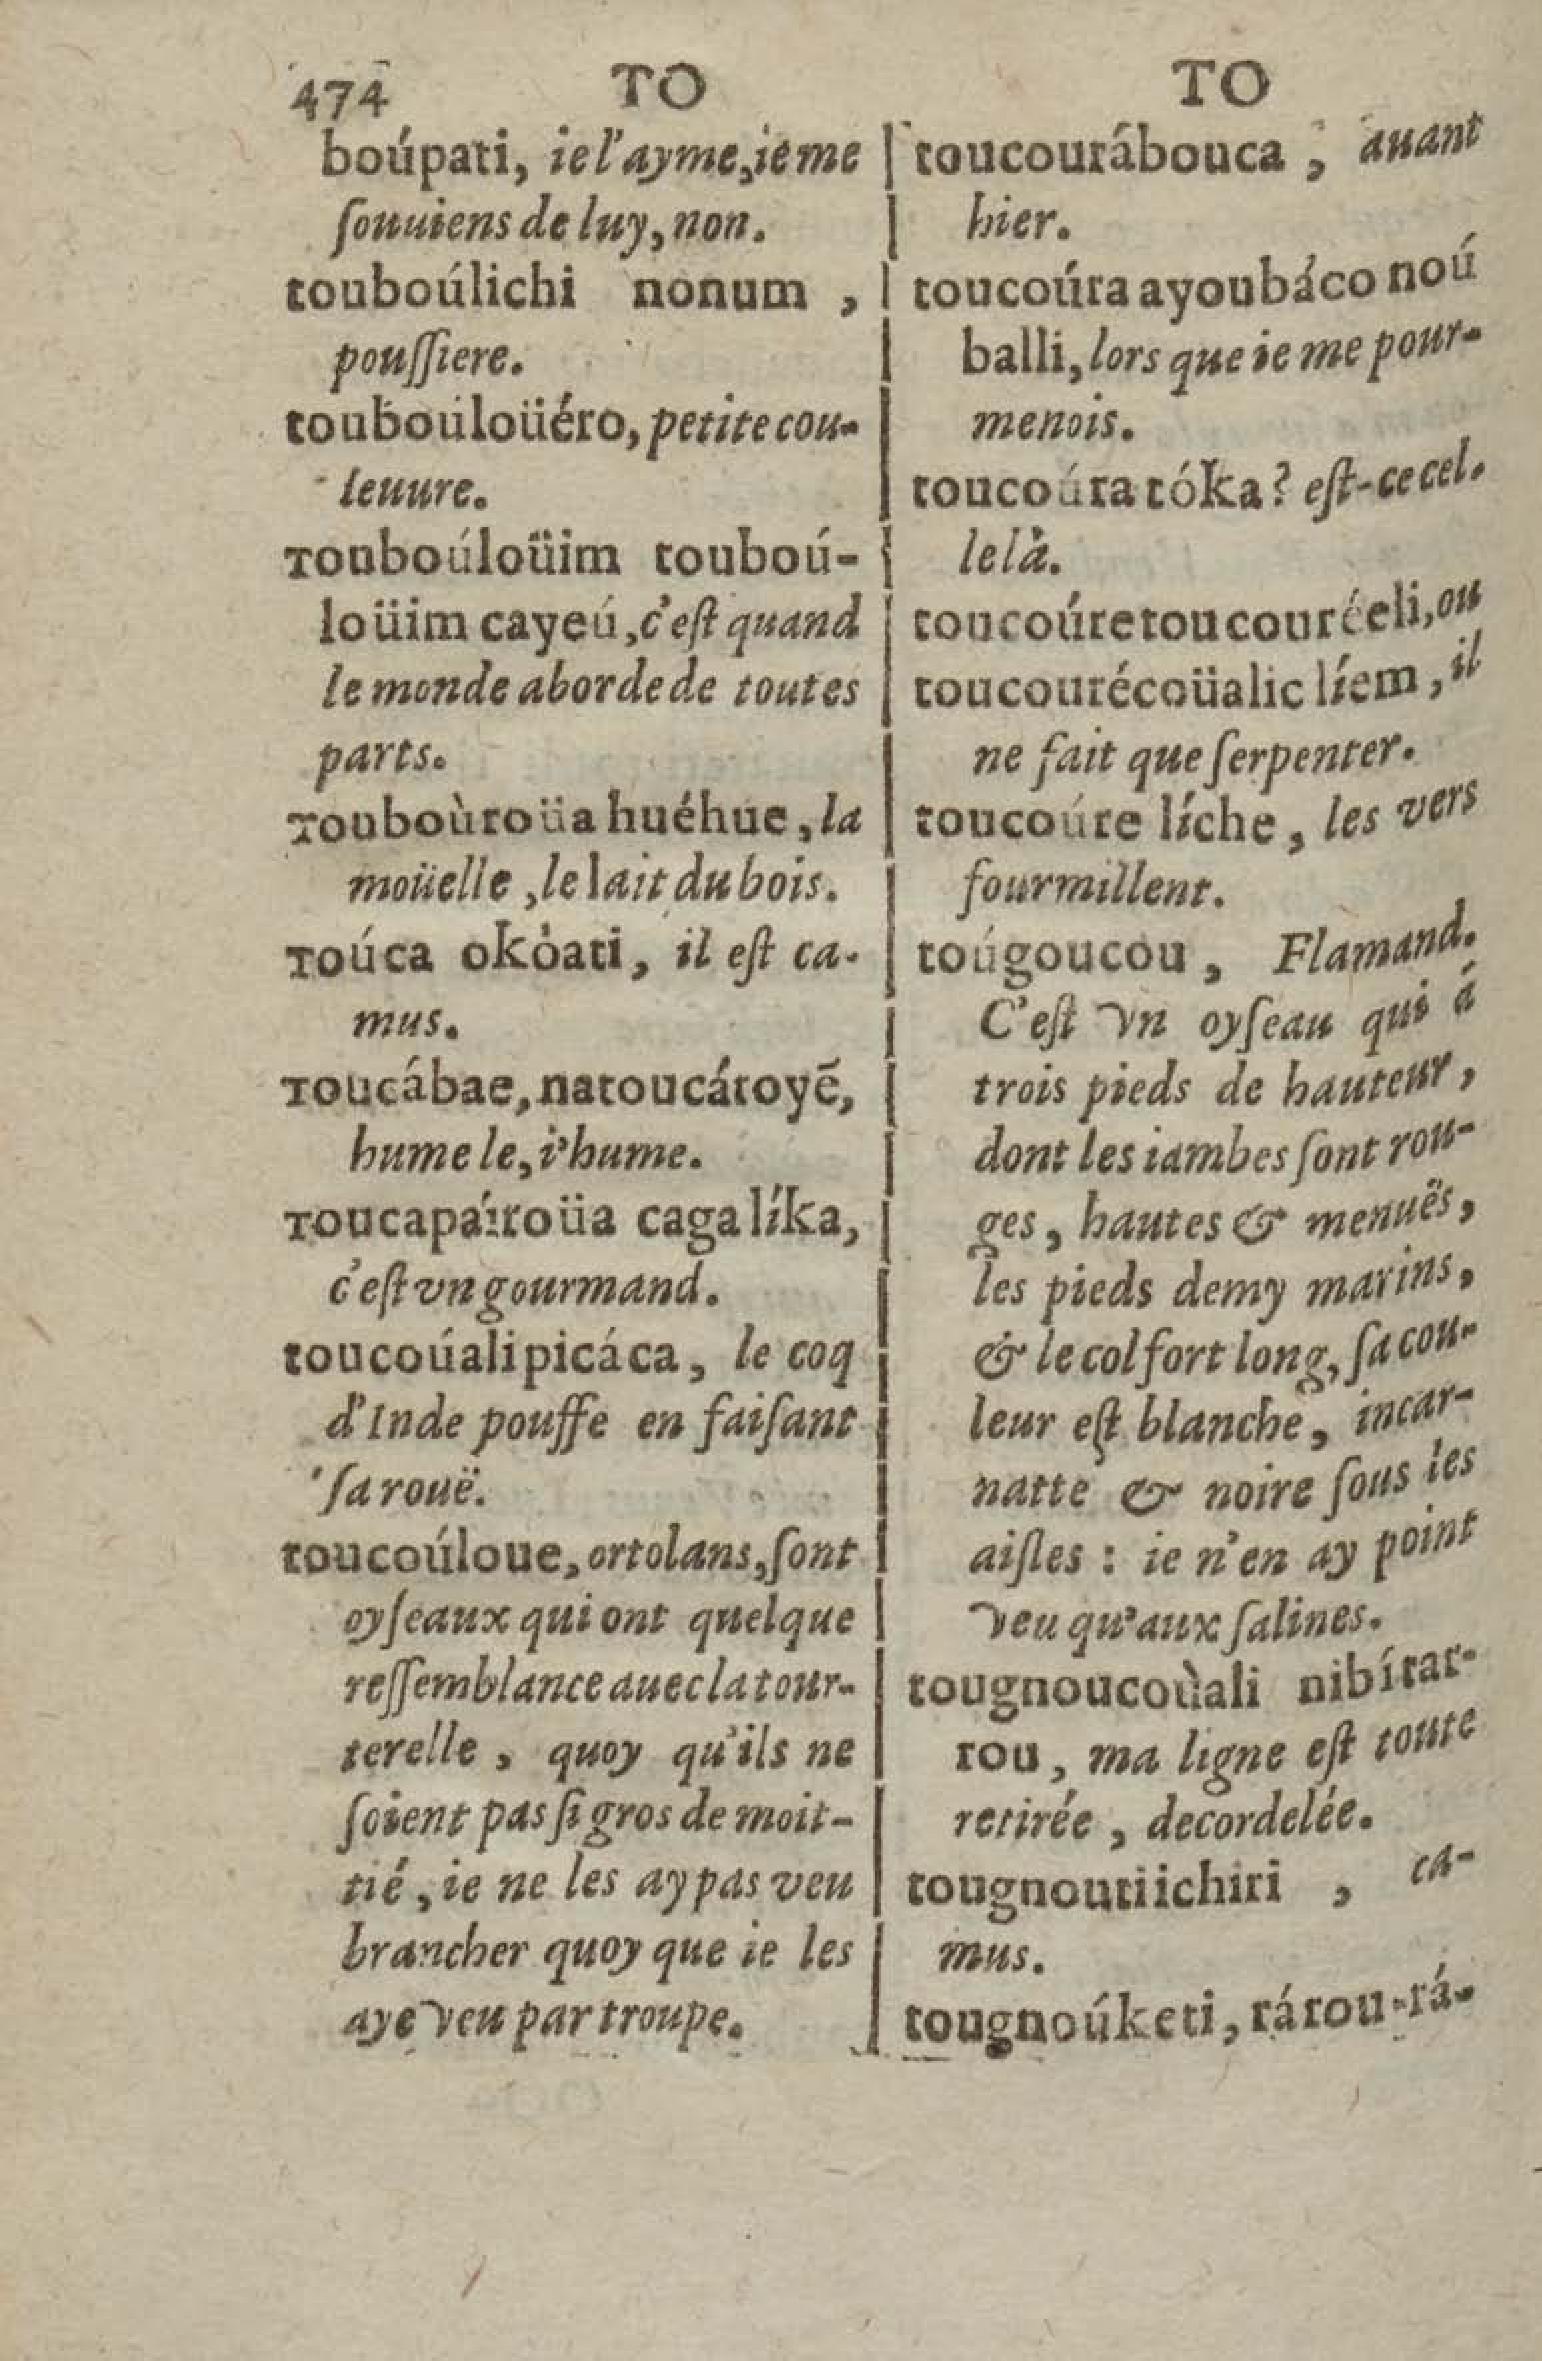 474 TO TO
boúpati, ie l'ayme, ie me
ſouuiens de luy, non.
touboúlichi nonum ,
pouſſiere.
toubouloüéro, petite cou-
leuure.
Touboúloüim touboú-
loüim cayeú, c'eſt quand
le monde aborde de toutes
parts.
Touboùroüa huéhue, la
moüelle , le lait du bois.
Toúca okòati, il eſt ca-
mus.
Toucábae, natoucátoyē,
hume le, i'hume.
Toucapáiroüa cagalíka,
c'eſt vn gourmand.
toucoúalipicáca, le coq
d'Inde pouffe en faiſant
ſa rouë.
toucoúloue, ortolans, ſont
oyſeaux qui ont quelque
reſſemblance auec la tour-
terelle , quoy qu'ils ne
ſoient pas ſi gros de moit-
tié , ie ne les ay pas veu
brancher quoy que ie les
aye veu par troupe.
toucourábouca , auant
hier.
toucoúra ayoubáco noú
balli, lors que ie me pour-
menois.
toucoúra tóka? eſt-ce cel-
le là.
toucoúretoucouréeli, ou
toucourécoüalic líem , il
ne fait que ſerpenter.
toucoúre líche , les vers
fourmillent.
toúgoucou , Flamand.
C'eſt vn oyſeau qui á
trois pieds de hauteur ,
dont les iambes ſont rou-
ges , hautes & menuës ,
les pieds demy marins,
& le col fort long, ſa cou-
leur eſt blanche , incar-
natte & noire ſous les
aiſles : ie n'en ay point
veu qu'aux ſalines.
tougnoucoùali nibírar-
rou , ma ligne eſt toute
retirée , decordelée.
tougnoutiichiri , ca-
mus.
tougnoúketi, rárou-rá-